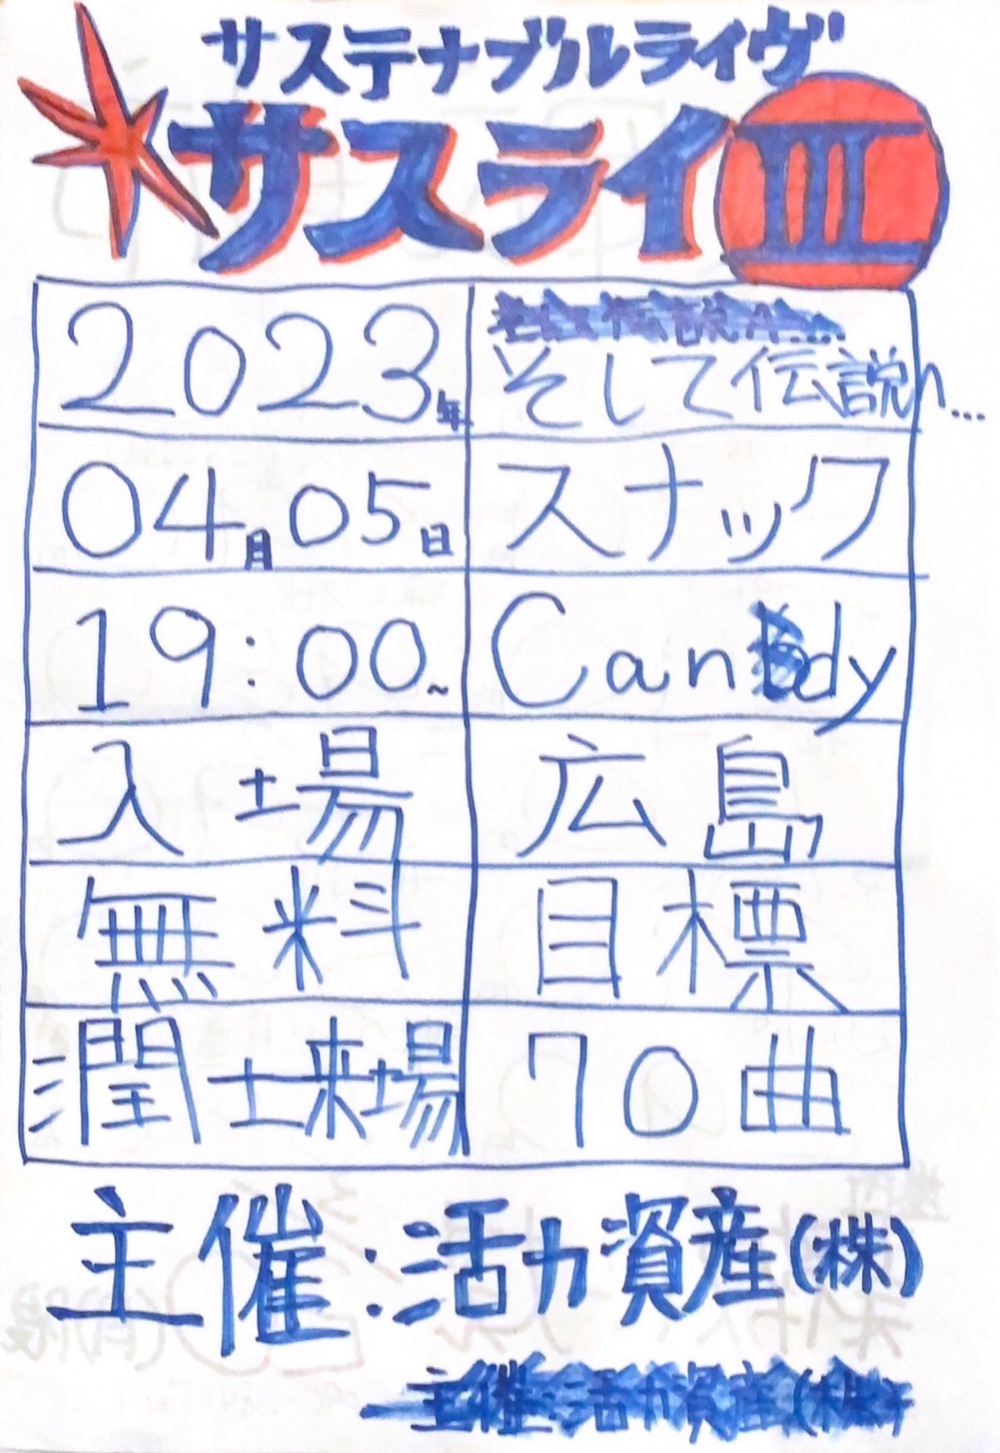 サステナブルライヴ
サスライIII
2023年
04月05日
19:00~
入場
無料
潤士来場
そして伝説へ...
そして伝説へ...
スナック
Candy
広島
目標
70曲
主催:活力資産(株)
主催:活力資産(株)